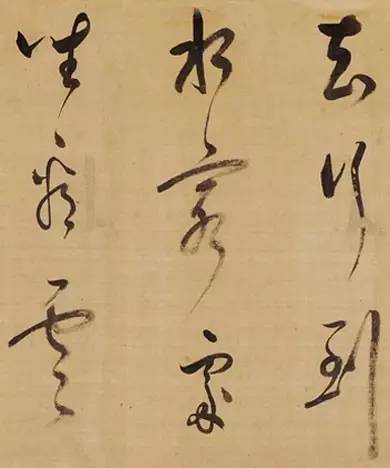 知行到
水窮處
坐看雲